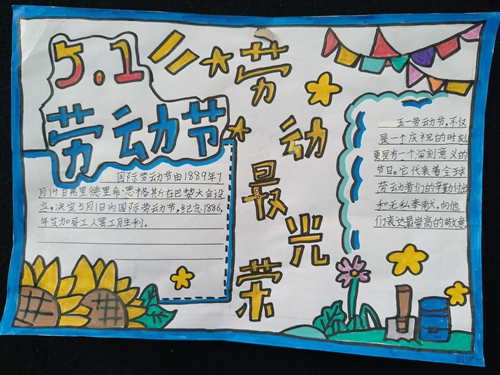 5.1
劳动节
劳动最光荣
国际劳动节由1889年7
月14日弗里德里希·恩格斯在巴黎大会设
立,决定5月1日为国际劳动节,纪念1886
年芝加哥工人罢工月生利。
五一劳动节,不仅
是一个庆祝的时刻
更是有一个深刻意义的
节日。它代表着全球
劳动者们的辛勤付出
和无私奉献,向他
们表达最崇高的敬意